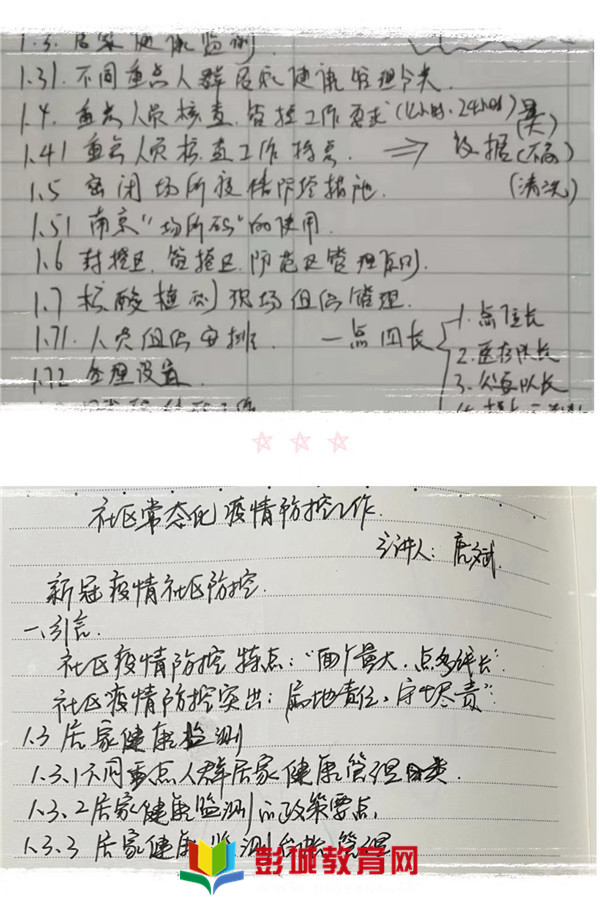 1.3. 居家健康监测
1.31. 不同重点人群居家健康管理分类.
1.4. 重点人员核查.管控工作要求(4小时.24小时)
1.41 重点人员核查工作特点. ⇒ 数据
(清洗)
1.5 密闭场所疫情防控措施.
1.51 南京“场所码”的使用.
1.6 封控区.管控区.防范区管理原则.
1.7 核酸检测现场组织管理.
1.71. 人员组织安排. 一点四长
1. 点位长
2. 医疗队长
3. 公安队长
1.72 合理设置
社区常态化疫情防控工作.
主讲人: 唐斌
新冠疫情社区防控.
一、引言.
社区疫情防控特点:“两个量大.点多线长”.
社区疫情防控突出: 属地责任,守土尽责”.
1.3 居家健康检测
1.3.1 不同重点人群居家健康管理分类.
1.3.2 居家健康监测的政策要点.
1.3.3 居家健康监测 管理
彭城教育网